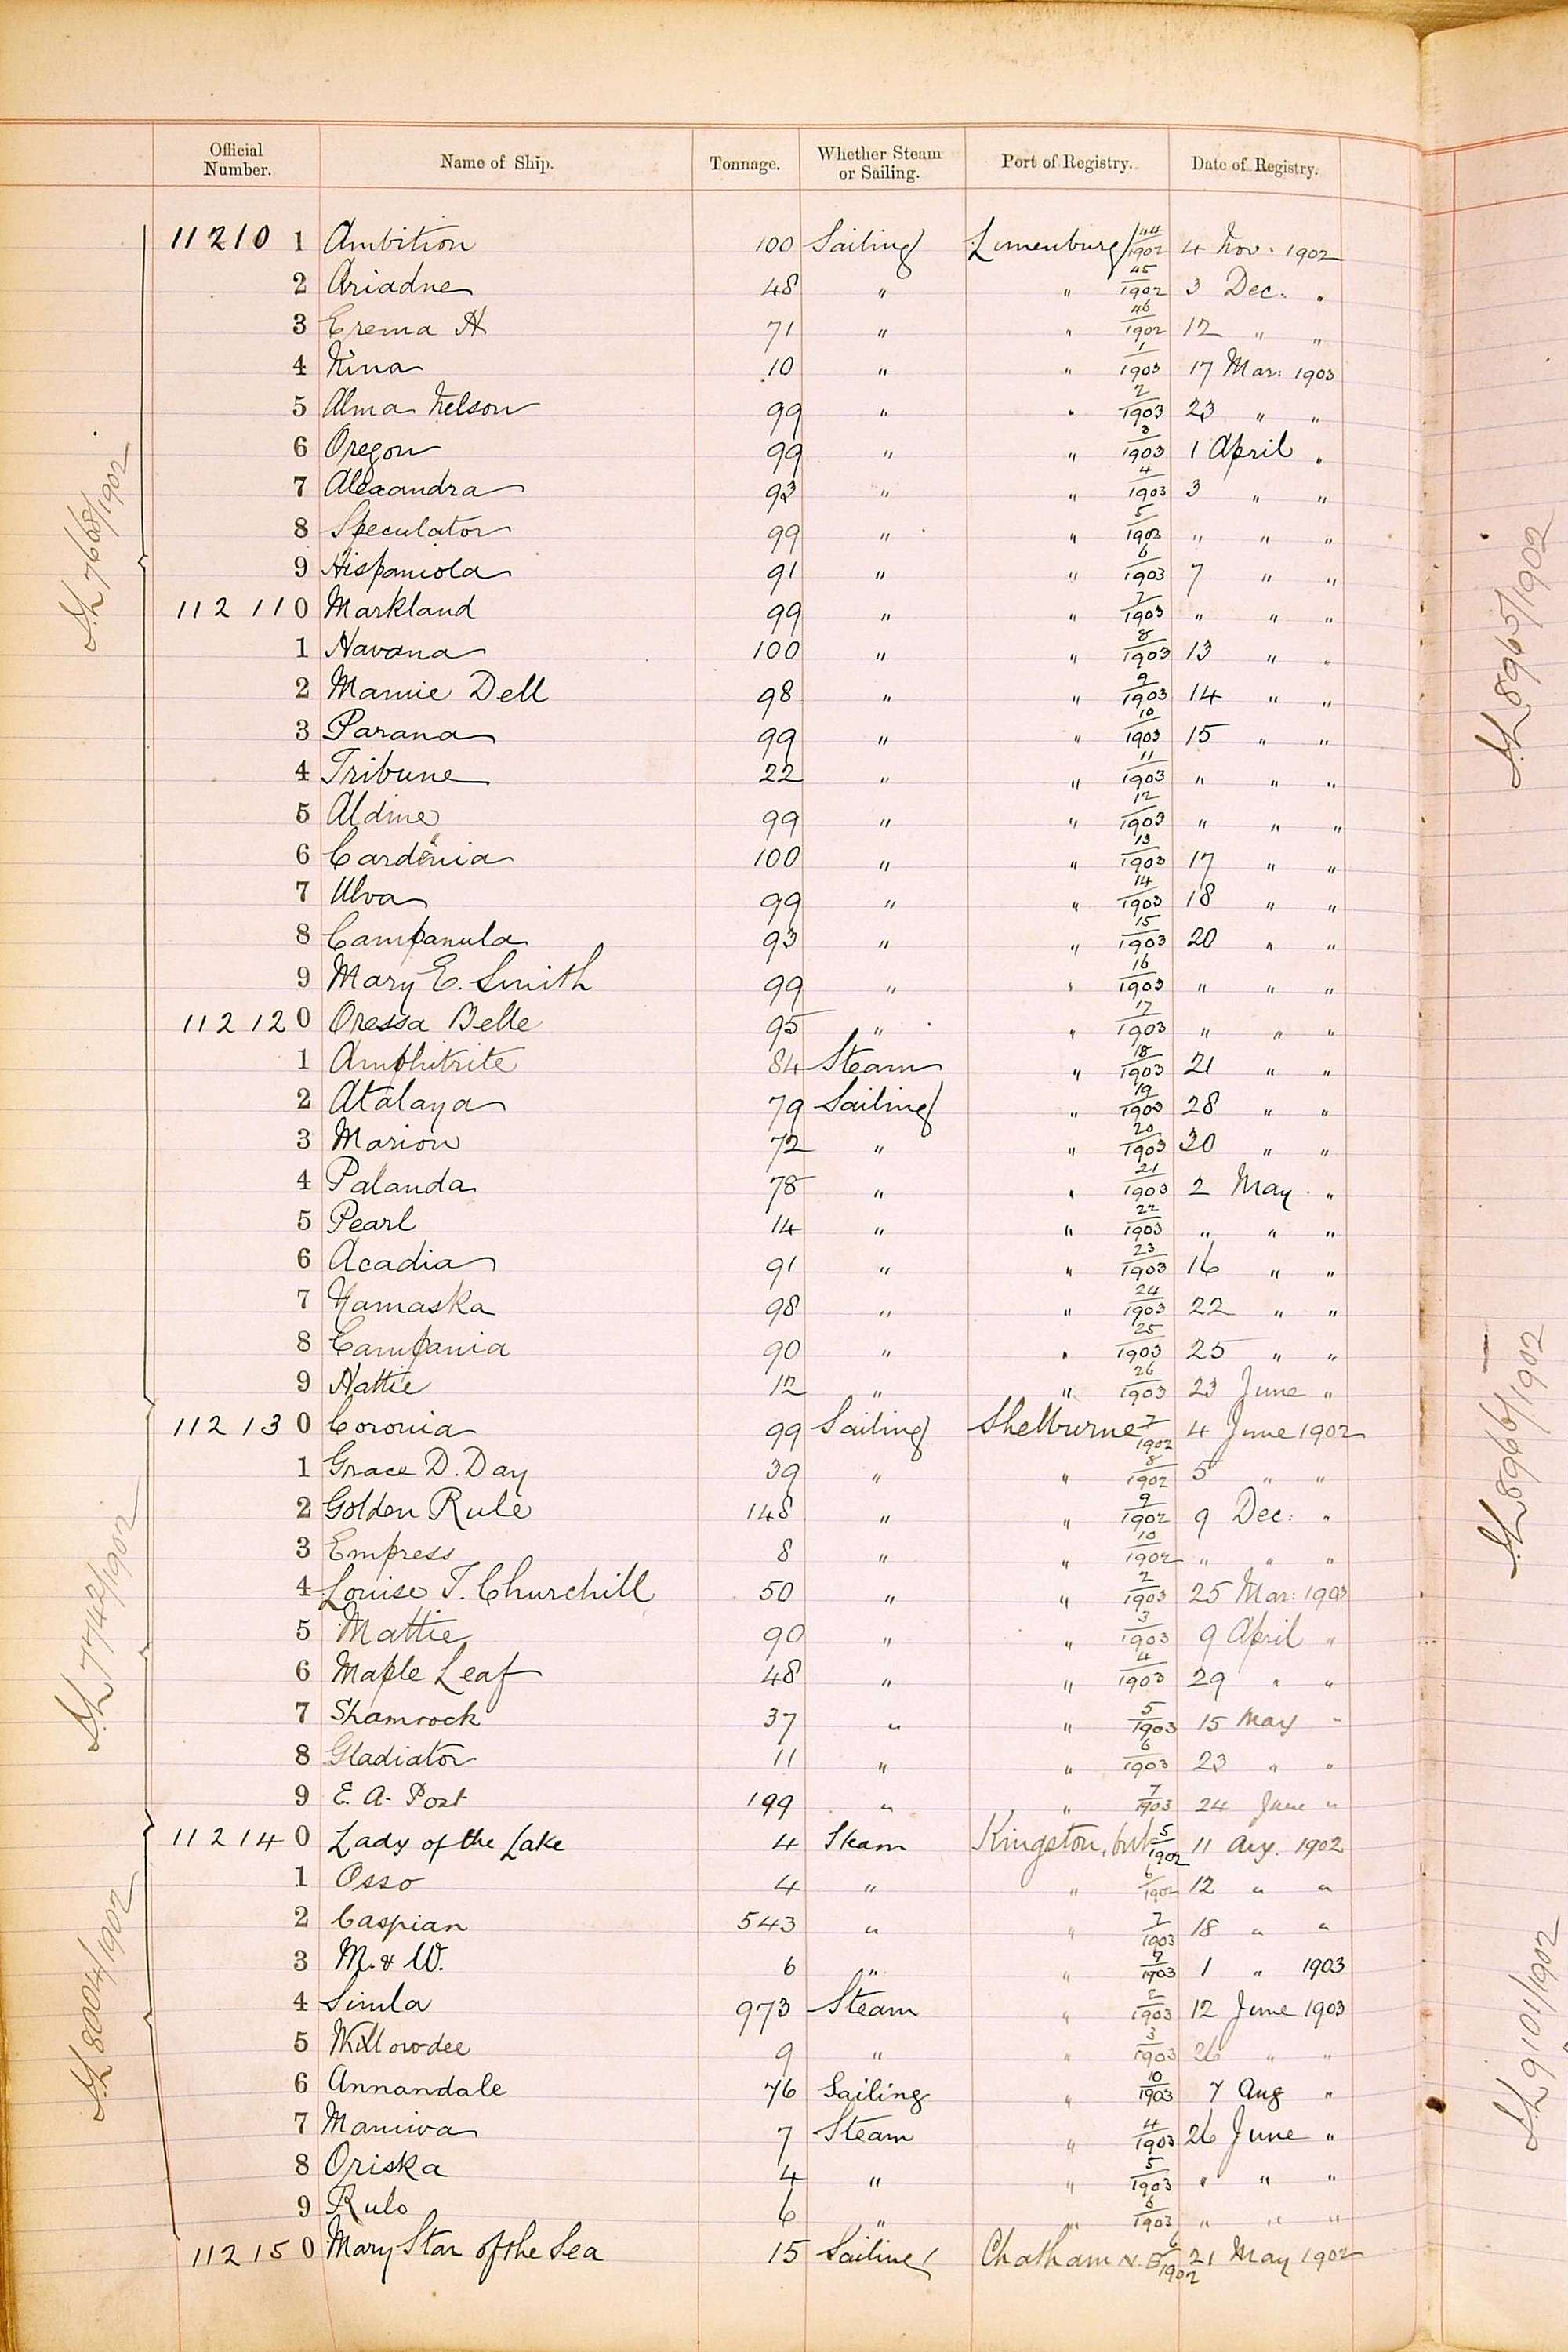 Official Number. Name of Ship. Tonnage. Whether Steam or Sailing. Port of Registry. Date of Registry.
11210 1 Ambition 100 Sailing Lunenburg 44/1902 4 Nov. 1902
2 Ariadne 48 " " 45/1902 3 Dec: "
3 Erema H 71 " " 46/1902 12 " "
4 Nina 10 " " 1/1903 17 Mar: 1903
5 Alma Nelson 99 " " 2/1903 23 " "
6 Oregon 99 " " 3/1903 1 April "
7 Alexandra 93 " " 4/1903 3 " "
8 Speculator 99 " " 5/1903 " " "
9 Hispaniola 91 " " 6/1903 7 " "
112 11 0 Markland 99 " " 7/1903 " " "
1 Havana 100 " " 8/1903 13 " "
2 Mamie Dell 98 " " 9/1903 14 " "
3 Parana 99 " " 10/1903 15 " "
4 Tribune 22 " " 11/1903 " " "
5 Aldine 99 " " 12/1903 " " "
6 Cardenia 100 " " 13/1903 17 " "
7 Ulva 99 " " 14/1903 18 " "
8 Campanula 93 " " 15/1903 20 " "
9 Mary E. Smith 99 " " 16/1903 " " "
112 12 0 Oressa Belle 95 " " 17/1903 " " "
1 Amphitrite 84 Steam " 18/1903 21 " "
2 Atalaya 79 Sailing " 19/1903 28 " "
3 Marion 72 " " 20/1903 30 " "
4 Palanda 78 " " 21/1903 2 May "
5 Pearl 14 " " 22/1903 " " "
6 Acadia 91 " " 23/1903 16 " "
7 Yamaska 98 " " 24/1903 22 " "
8 Campania 90 " " 25/1903 25 " "
9 Hattie 12 " " 26/1903 23 June "
112 13 0 Coronia 99 Sailing Shelburne 7/1902 4 June 1902
1 Grace D. Day 39 " " 8/1902 5 " "
2 Golden Rule 148 " " 9/1902 9 Dec: "
3 Empress 8 " " 10/1902 " " "
4 Louise T. Churchill 50 " " 2/1903 25 Mar: 1903
5 Mattie 90 " " 3/1903 9 April "
6 Maple Leaf 48 " " 4/1903 29 " "
7 Shamrock 37 " " 5/1903 15 May "
8 Gladiator 11 " " 6/1903 23 " "
9 E. A. Post 199 " " 7/1903 24 June "
112 14 0 Lady of the Lake 4 Steam Kingston, Ont 5/1902 11 Aug. 1902
1 Osso 4 " " 6/1902 12 " "
2 Caspian 543 " " 7/1903 18 " "
3 M. & W. 6 " " 9/1903 1 " 1903
4 Simla 973 Steam " 2/1903 12 June 1903
5 Willowdee 9 " " 3/1903 26 " "
6 Annandale 76 Sailing " 10/1903 7 Aug "
7 Maniwa 7 Steam " 4/1903 26 June "
8 Oriska 4 " " 5/1903 " " "
9 Rulo 6 " " 6/1903 " " "
112 15 0 Mary Star of the Sea 15 Sailing Chatham N.B. 6/1902 21 May 1902
7668/1902
7742/1902
8004/1902
8965/1902
8966/1902
9101/1902